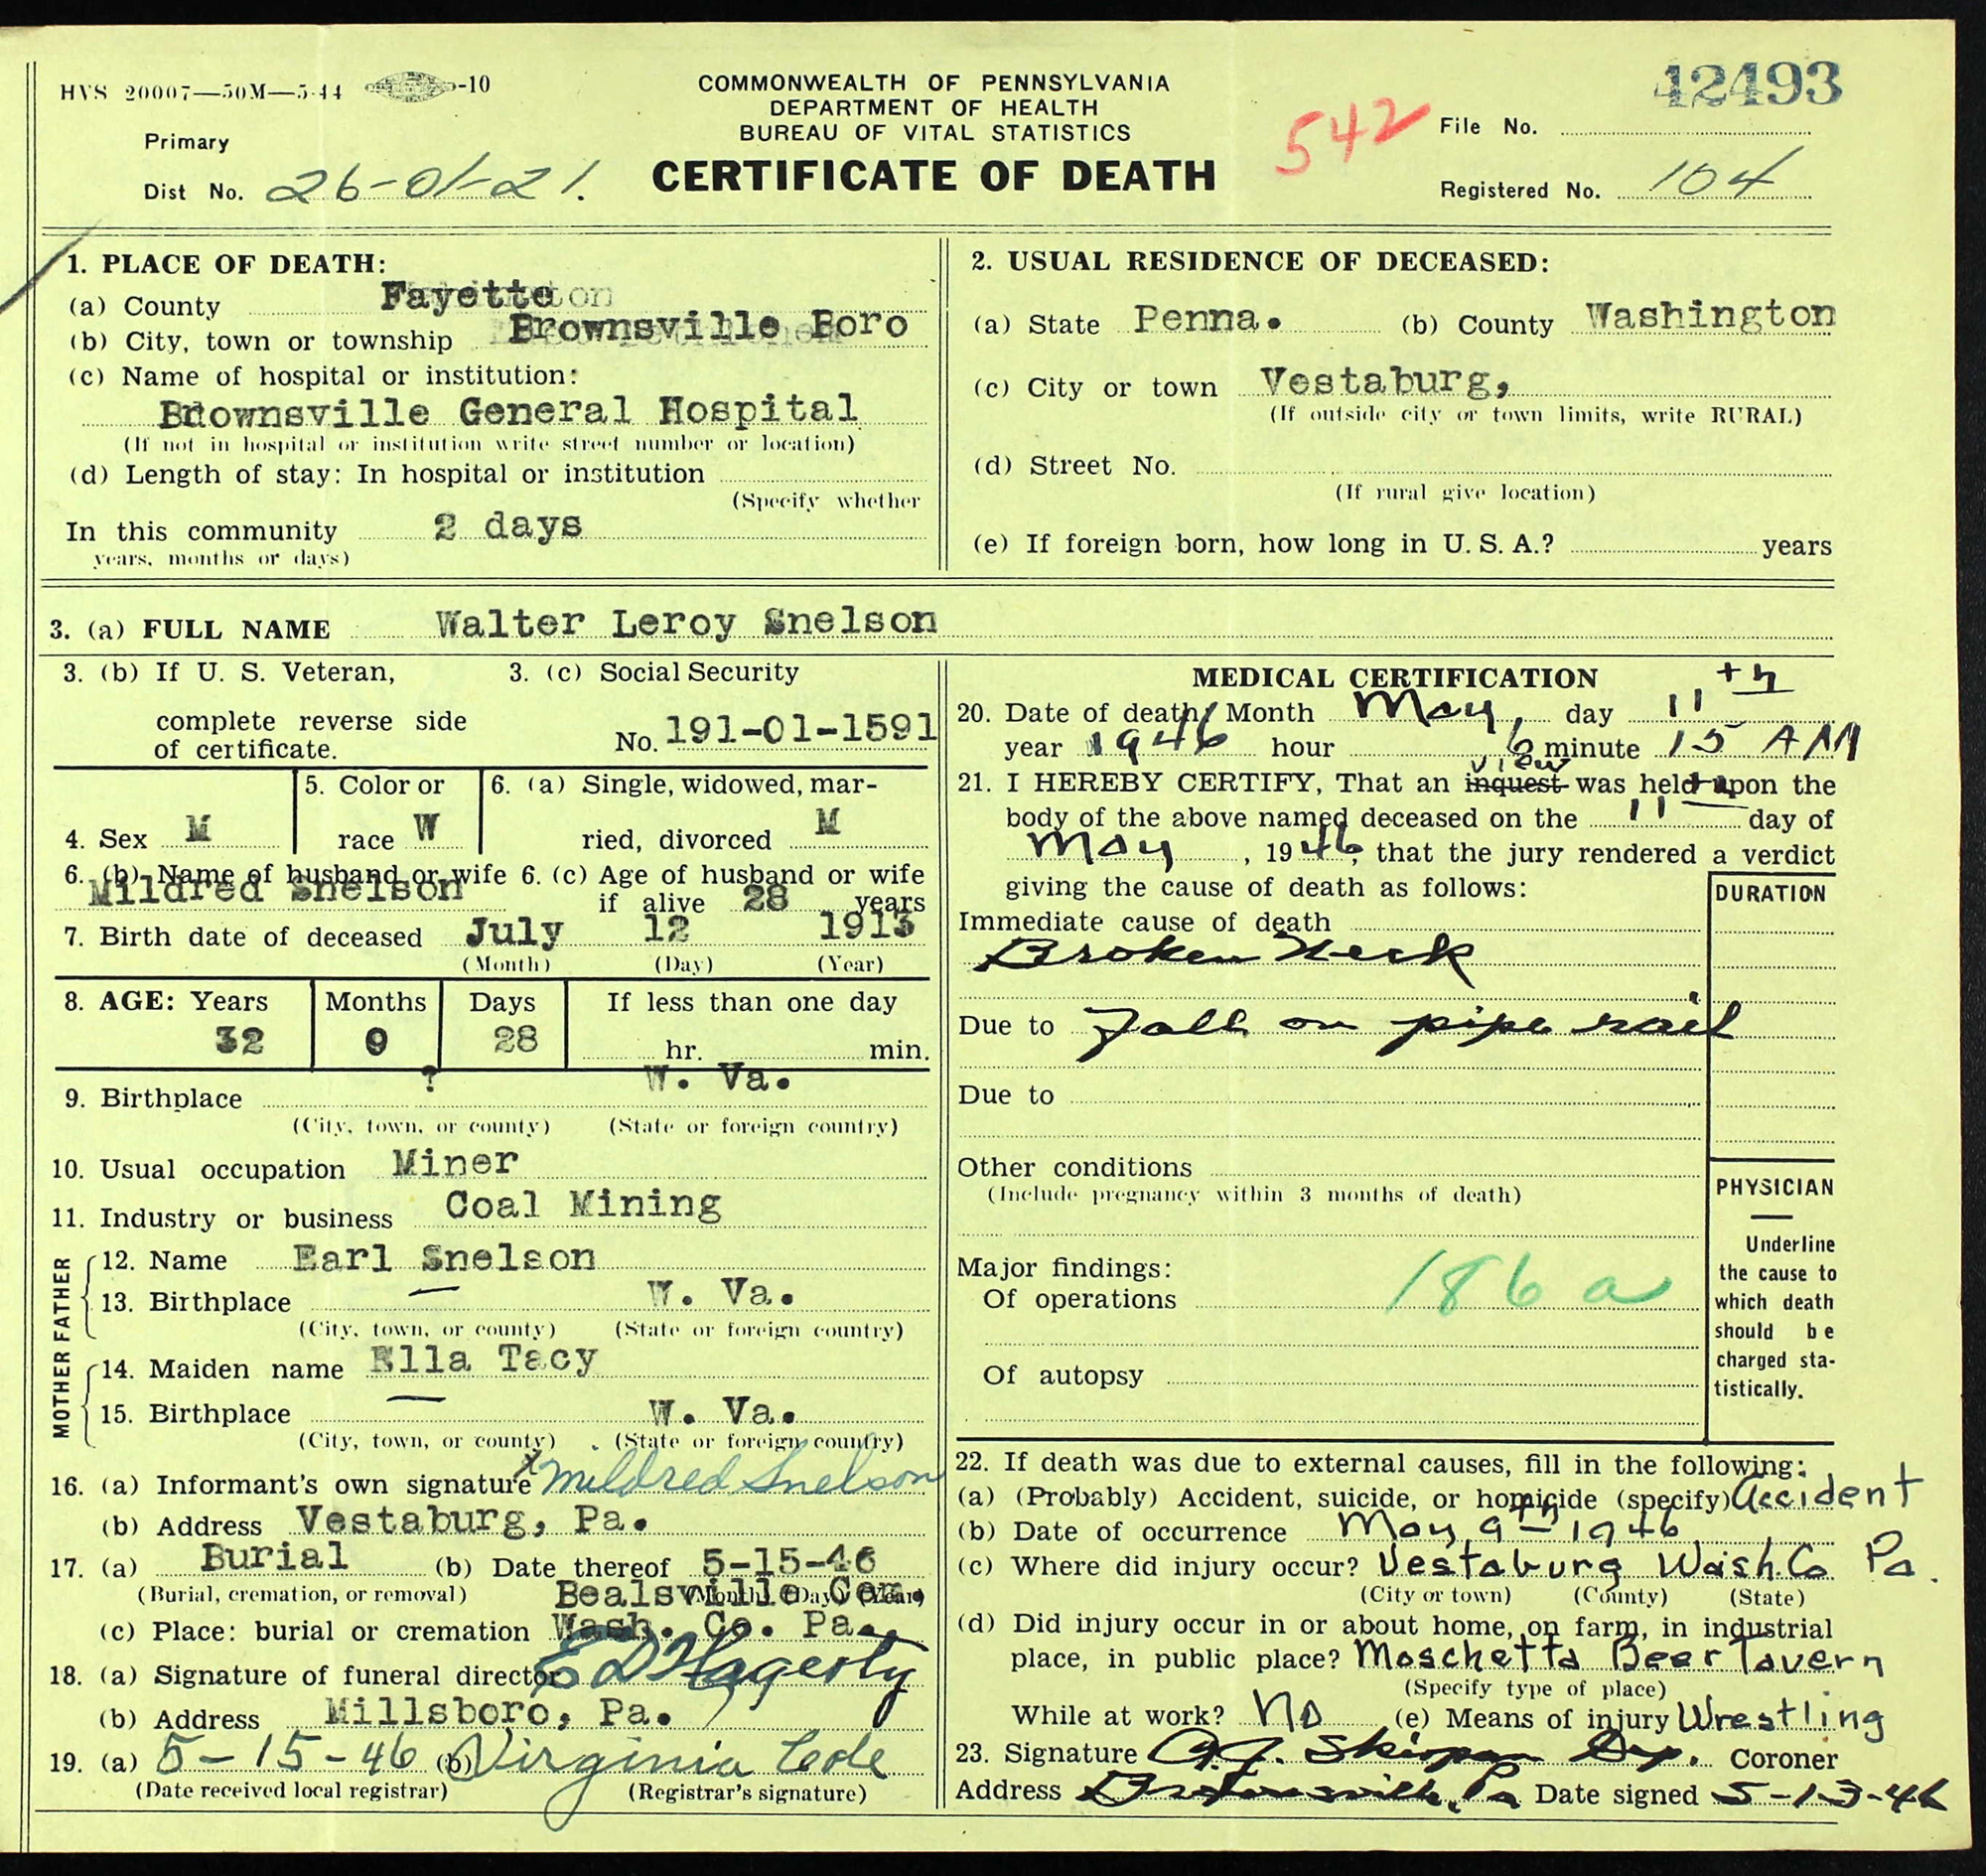 HVS 20007—50M—5-44 -10
COMMONWEALTH OF PENNSYLVANIA
DEPARTMENT OF HEALTH
BUREAU OF VITAL STATISTICS
CERTIFICATE OF DEATH
542
42493
File No.
Registered No. 104
Primary
Dist No. 26-01-21.
1. PLACE OF DEATH:
(a) County Fayette
(b) City, town or township Brownsville Boro
(c) Name of hospital or institution:
Brownsville General Hospital
(If not in hospital or institution write street number or location)
(d) Length of stay: In hospital or institution
(Specify whether
In this community 2 days
years, months or days)
2. USUAL RESIDENCE OF DECEASED:
(a) State Penna. (b) County Washington
(c) City or town Vestaburg,
(If outside city or town limits, write RURAL)
(d) Street No.
(If rural give location)
(e) If foreign born, how long in U. S. A.? years
3. (a) FULL NAME Walter Leroy Snelson
3. (b) If U. S. Veteran,
complete reverse side
of certificate.
3. (c) Social Security
No. 191-01-1591
4. Sex M
5. Color or
race W
6. (a) Single, widowed, mar-
ried, divorced M
6. (b) Name of husband or wife
Mildred Snelson
6. (c) Age of husband or wife
if alive 28 years
7. Birth date of deceased July 12 1913
(Month) (Day) (Year)
8. AGE: Years Months Days If less than one day
32 9 28 hr. min.
9. Birthplace ? W. Va.
(City, town, or county) (State or foreign country)
10. Usual occupation Miner
11. Industry or business Coal Mining
FATHER
12. Name Earl Snelson
13. Birthplace — W. Va.
(City, town, or county) (State or foreign country)
MOTHER
14. Maiden name Ella Tacy
15. Birthplace — W. Va.
(City, town, or county) (State or foreign country)
16. (a) Informant's own signature x Mildred Snelson
(b) Address Vestaburg, Pa.
17. (a) Burial (b) Date thereof 5-15-46
(Burial, cremation, or removal) (Month) (Day) (Year)
Bealsville Cem.
(c) Place: burial or cremation Wash. Co. Pa.
18. (a) Signature of funeral director E D Hagerty
(b) Address Millsboro, Pa.
19. (a) 5-15-46 (b) Virginia Cole
(Date received local registrar) (Registrar's signature)
MEDICAL CERTIFICATION
20. Date of death: Month May, day 11th
year 1946 hour 6 minute 15 AM
view
21. I HEREBY CERTIFY, That an inquest was held upon the
body of the above named deceased on the 11 day of
May, 1946, that the jury rendered a verdict
giving the cause of death as follows:
DURATION
Immediate cause of death
Broken Neck
Due to Fall on pipe rail
Due to
Other conditions
(Include pregnancy within 3 months of death)
Major findings:
Of operations 186 a
Of autopsy
PHYSICIAN
Underline
the cause to
which death
should be
charged sta-
tistically.
22. If death was due to external causes, fill in the following:
(a) (Probably) Accident, suicide, or homicide (specify) Accident
(b) Date of occurrence May 9th 1946
(c) Where did injury occur? Vestaburg Wash. Co Pa.
(City or town) (County) (State)
(d) Did injury occur in or about home, on farm, in industrial
place, in public place? Moschetta Beer Tavern
(Specify type of place)
While at work? No (e) Means of injury Wrestling
23. Signature Dep. Coroner
Address Brownsville, Pa Date signed 5-13-46